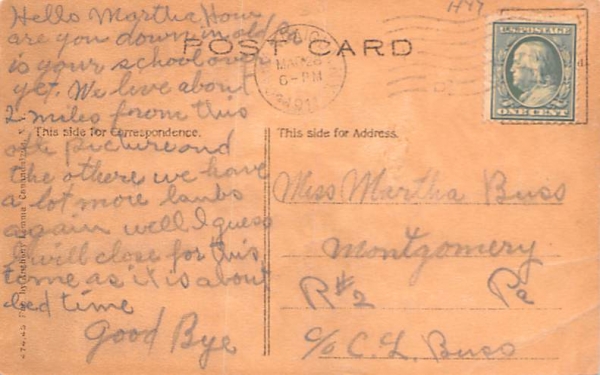 Hello Martha How
are you down in old Pa
is your school over
yet. We live about
2 miles from this
POST CARD
MAR 28
6-PM
U.S. POSTAGE
ONE CENT
This side for Correspondence.
This side for Address.
one picture and
the others we have
a lot more lambs
again well I guess
I will close for this
time as it is about
bed time
Good Bye
Miss Martha Buss
Montgomery
R#2 Pa
c/o C. L. Buss